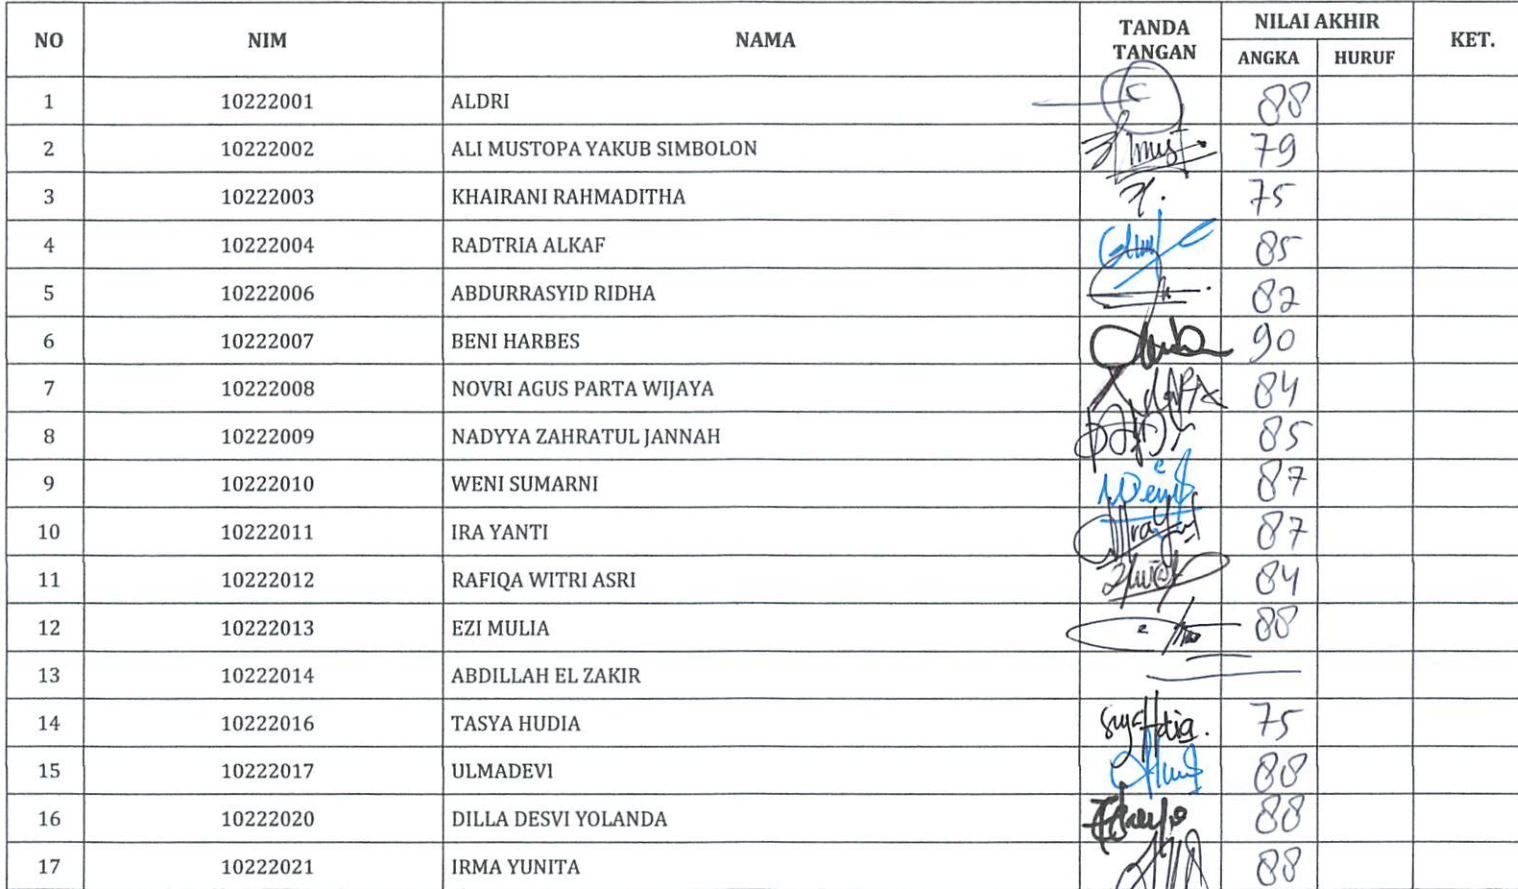 NO NIM NAMA TANDA TANGAN NILAI AKHIR KET.
ANGKA HURUF
1 10222001 ALDRI 88
2 10222002 ALI MUSTOPA YAKUB SIMBOLON 79
3 10222003 KHAIRANI RAHMADITHA 75
4 10222004 RADTRIA ALKAF 85
5 10222006 ABDURRASYID RIDHA 82
6 10222007 BENI HARBES 90
7 10222008 NOVRI AGUS PARTA WIJAYA 84
8 10222009 NADYYA ZAHRATUL JANNAH 85
9 10222010 WENI SUMARNI 87
10 10222011 IRA YANTI 87
11 10222012 RAFIQA WITRI ASRI 84
12 10222013 EZI MULIA 88
13 10222014 ABDILLAH EL ZAKIR
14 10222016 TASYA HUDIA 75
15 10222017 ULMADEVI 88
16 10222020 DILLA DESVI YOLANDA 88
17 10222021 IRMA YUNITA 88